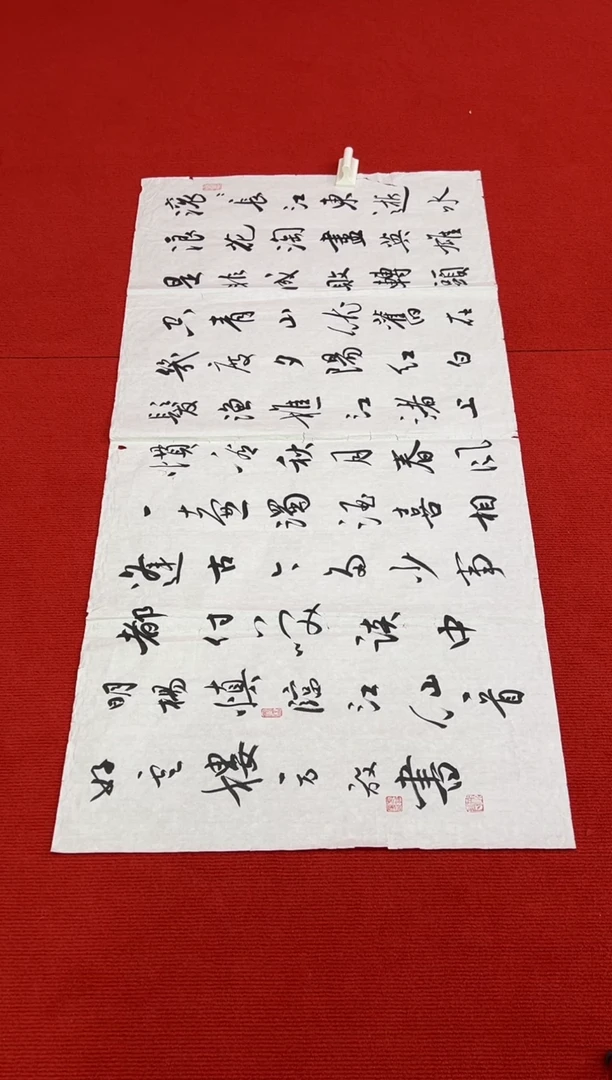 滚〻長江東逝水
浪花淘盡英雄
是非成敗轉頭
空青山依舊在
幾度夕陽紅白
髮漁樵江渚上
慣看秋月春風
一壺濁酒喜相
逢古今多少事
都付笑談中
明楊慎臨江仙首
樓書